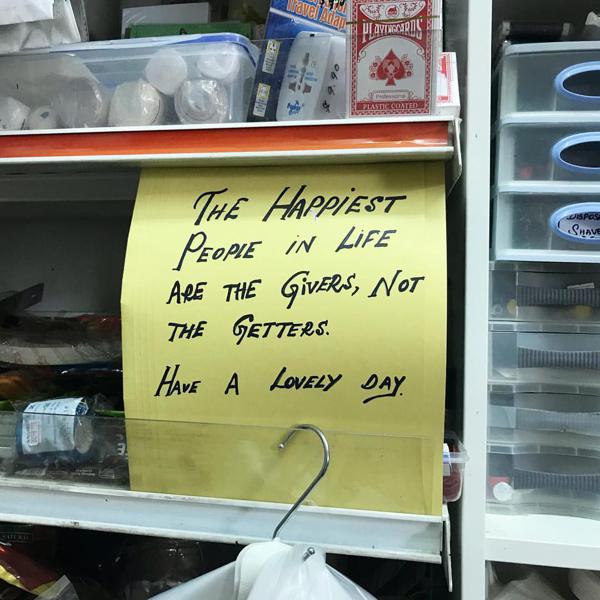 Travel Adap
PLAYING CARDS
Professional
PLASTIC COATED
THE HAPPIEST
PEOPLE IN LIFE
ARE THE GIVERS, NOT
THE GETTERS.
HAVE A LOVELY DAY.